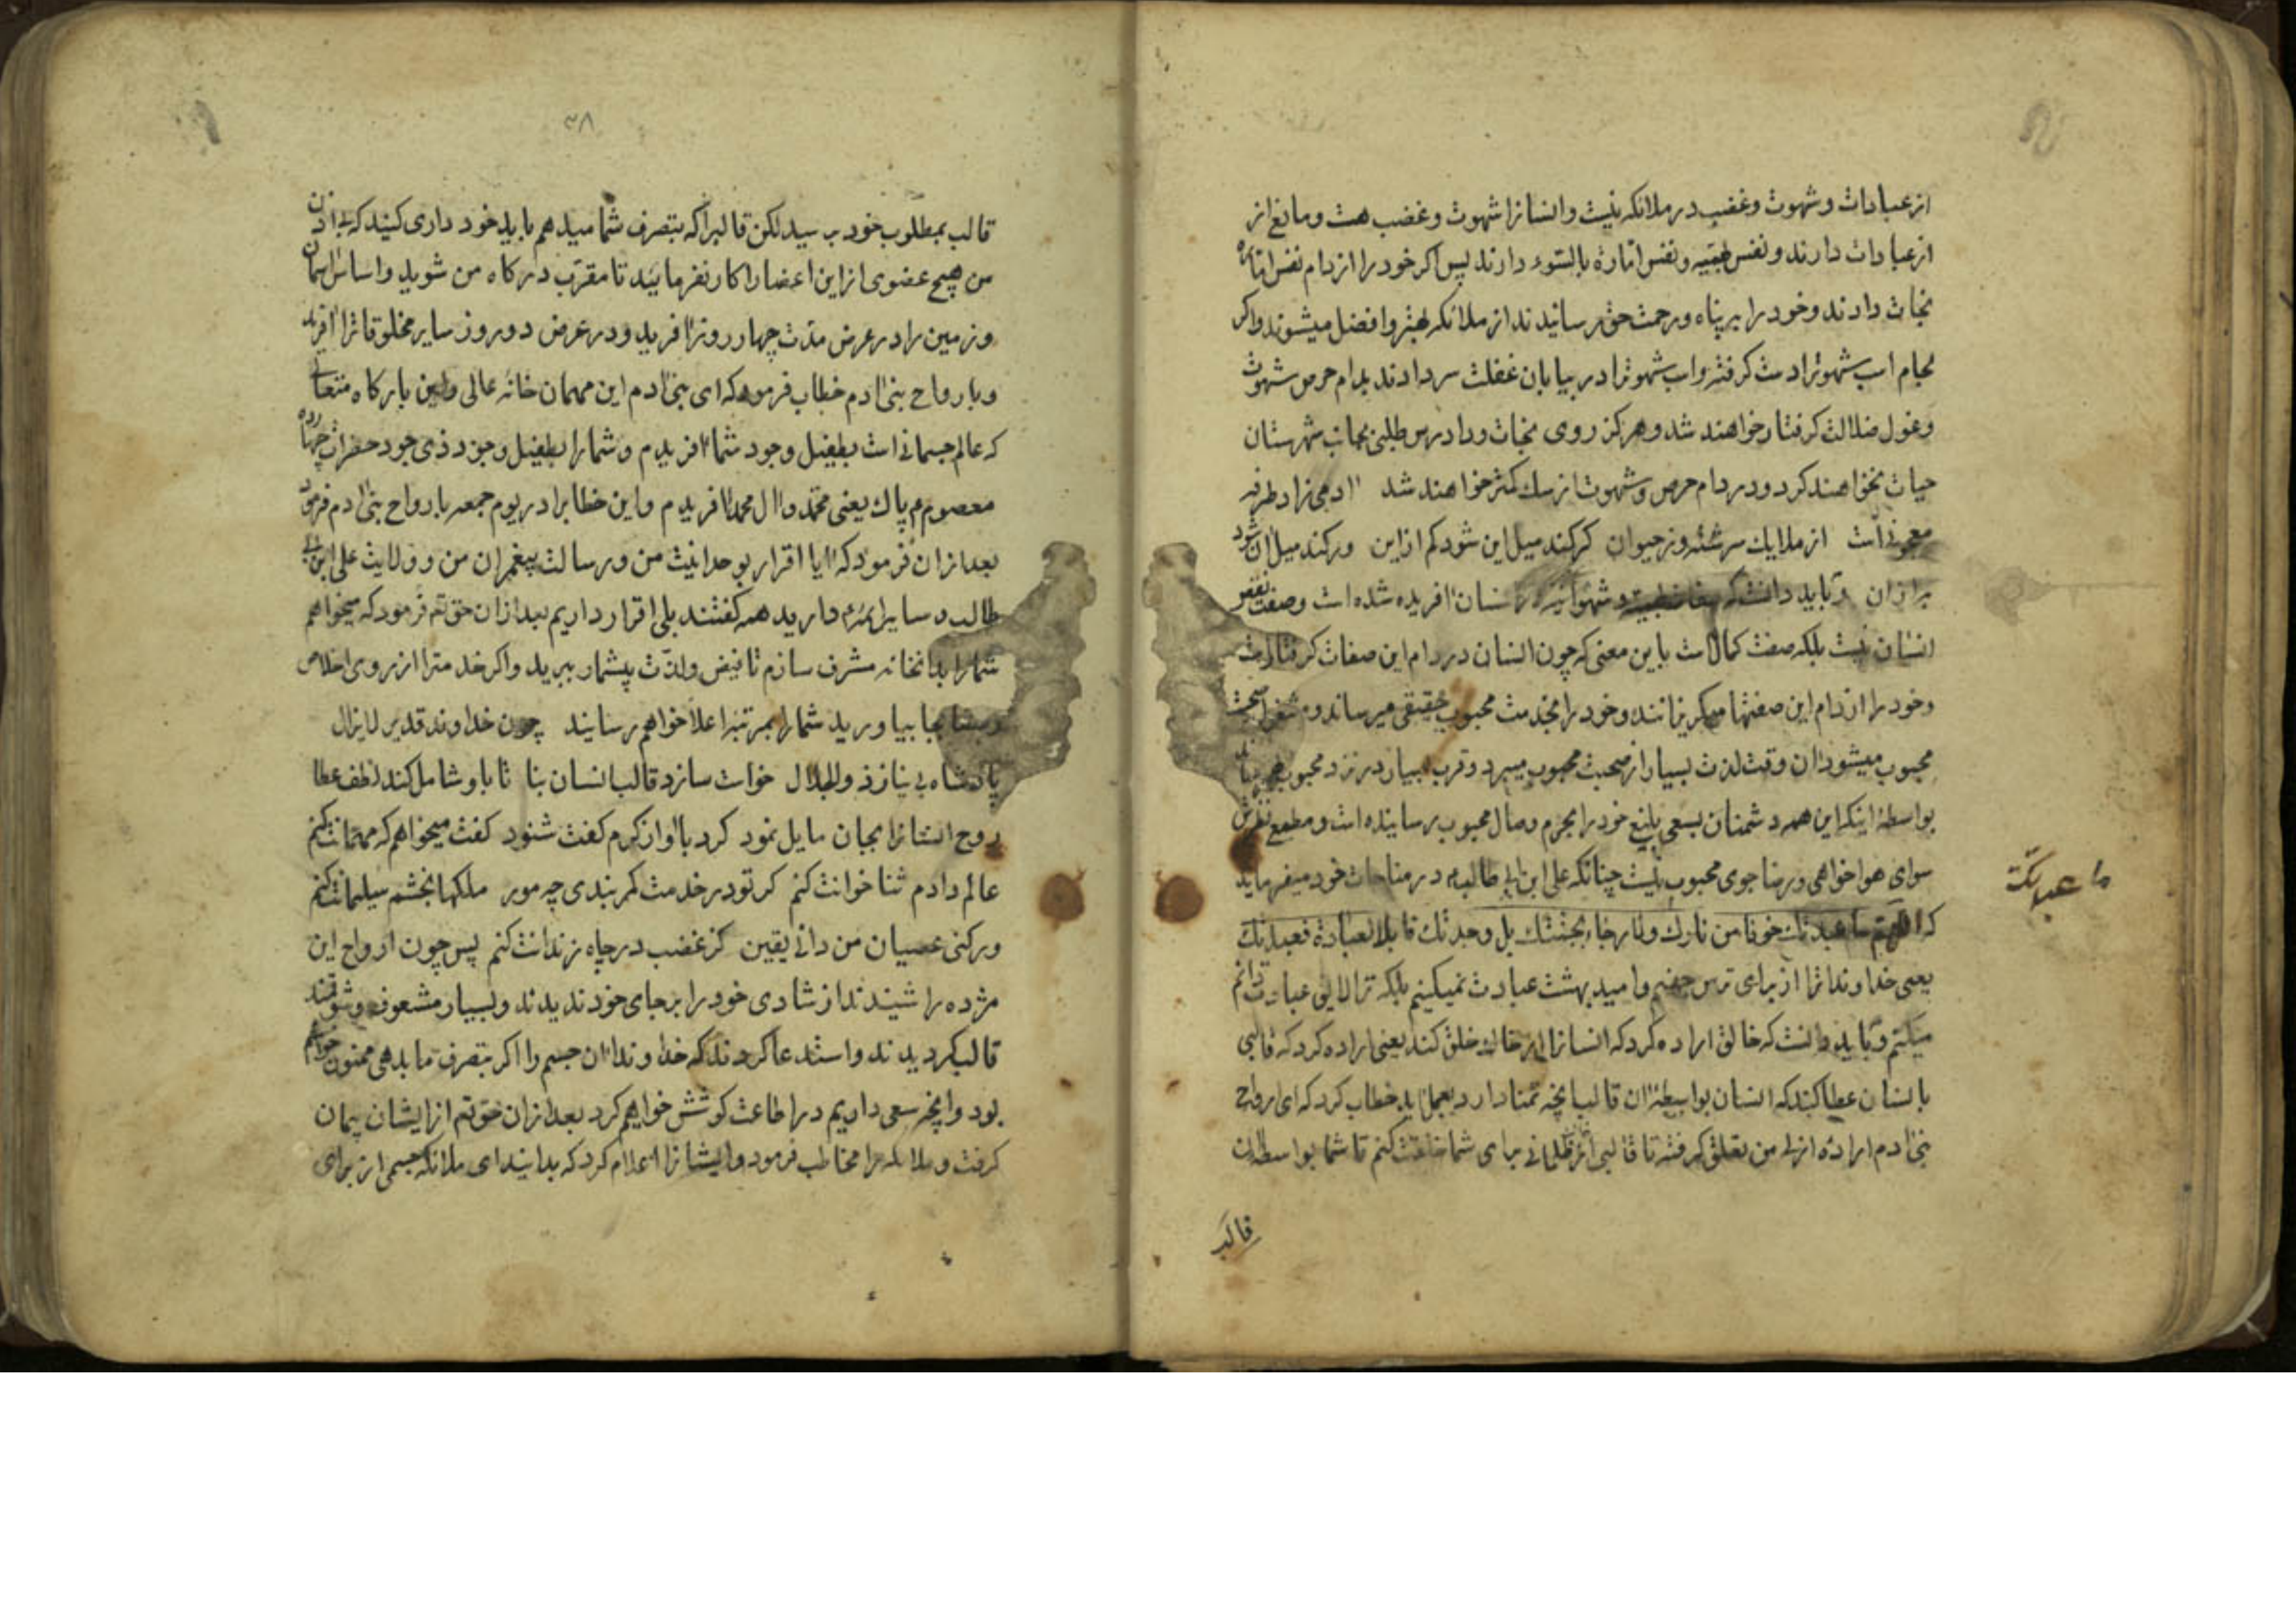 از عبادات و شهوت و غضب در ملائکه نیست و انسانرا شهوت و غضب هست و مانع از
از عبادات دارند و نفس و نفس اماره بالسوء دارند پس اکر خود را از دام نفس اماره
نجات دادند و خود را بر پناه و رحمت حق رسانیدند از ملائکه بهتر و افضل میشوند و اکر
لجام اسب شهوترا دست کرفته و اسب شهوترا در بیابان غفلت سر دادند بدام حرص شهوت
و غول ضلالت کرفتار خواهند شد و هرکز روی نجات و را درس طلبی بجانب شهرستان
حیات نخواهند کرد و در دام حرص و شهوت از سک کمتر خواهند شد آدمی زاد طرفه
معجونی است از ملایک سرشته وز حیوان کر کند میل این شود کم ازین ور کند میل آن شود
به از آن و باید دانست که صفات و شهوانیه در انسان آفریده شده است و صفت نقص
انسان نیست بلکه صفت کمال است باین معنی که چون انسان در دام این صفات کرفتار است
و خود را از دام این صفتها میکریزانند و خود را بخدمت محبوب حقیقی میرساند و مشغول صحبت
محبوب میشود آن وقت لذت بسیار از صحبت محبوب میبرد و قرب بسیار در نزد محبوب
بواسطۀ اینکه این همه دشمنان بسعی بلیغ خود را بحرم وصال محبوب رسانیده است و مطمع نظرش
سوای هواخواهی و رضا جوی محبوب نیست چنانکه علی ابن ابی طالب در مناجات خود میفرماید
که اللهم ما عبدتک خوفا من نارک ولا رجاء بجنتک بل وجدتک قابلا لعبادة فعبدتک
یعنی خداوندا ترا از برای ترس جهنم و امید بهشت عبادت نمیکنیم بلکه ترا لایق عبادت دانم
میکنم و باید دانست که خالق اراده کرد که انسانرا از خاک خلق کند یعنی اراده کرد که قالبی
بانسان عطا کند که انسان بواسطۀ آن قالب آنچه تمنا دارد بعمل آید خطاب کرد که ای ارواح
بنی آدم اراده ازلی من تعلق کرفته تا قالبی از ظلمانی برای شما خلقت کنم تا شما بواسطه آن
قالب
ما عبدتک
۳۸
قالب بمطلوب خود برسید لکن قالبرا که بتصرف شما میدهم باید خود داری کنید که بی اذن
من هیچ عضوی از این اعضا را کار نفرمایید تا مقرب درکاه من شوید و اساس آسمان
و زمین را در عرض مدت چهار روز آفرید و در عرض دو روز سایر مخلوقاترا آفرید
و بارواح بنی آدم خطاب فرمود که ای بنی آدم این مهمان خانۀ عالی و این بارکاه متعالی
که عالم جسمانی است بطفیل وجود شما آفریدم و شما را بطفیل وجود ذی جود حضرات چهارده
معصوم پاک یعنی محمد و آل محمد آفریدم و این خطابرا در یوم جمعه بارواح بنی آدم فرمود
بعد از آن فرمود که آیا اقرار بوحدانیت من و رسالت پیغمبران من و ولایت علی ابن ابی
طالب و سایر ائمه دارید همه کفتند بلی اقرار داریم بعد از آن حق تعم فرمود که میخواهم
شما را بدانخانه مشرف سازم تا فیض و لذت بیشمار ببرید و اکر خدمت مرا از روی اخلاص
و رضا بجا بیاورید شما را بمرتبۀ اعلا خواهم رسانید چون خداوند قدیر لایزال
پادشاه بی نیاز ذو الجلال خواست سازد قالب انسان بنا تا باو شامل کند لطف عطا
روح انسانرا بجان مایل نمود کرد با آواز کرم کفت شنود کفت میخواهم که مهمانت کنم
عالم دادم ثنا خوانت کنم کر تو در خدمت کمر بندی چه مور ملکها بخشم سلیمانت کنم
ور کنی عصیان من دانی یقین کز غضب در چاه زندانت کنم پس چون ارواح این
مژده را شنیدند از شادی خود را بر جای خود ندیدند و بسیار مشعوف و شوقمند
قالب کردیدند و استدعا کردند که خداوندا آن جسم را اکر بتصرف ما بدهی ممنون خواهیم
بود و آنچه سعی داریم در اطاعت کوشش خواهیم کرد بعد از آن حق تعم از ایشان پیمان
کرفت و ملائکه را مخاطب فرمود و ایشانرا اعلام کرد که بدانید ای ملائکه جسمی از برای